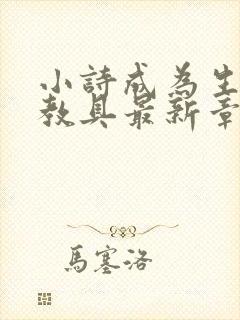 小詩成為生
教具最新章
馬塞洛